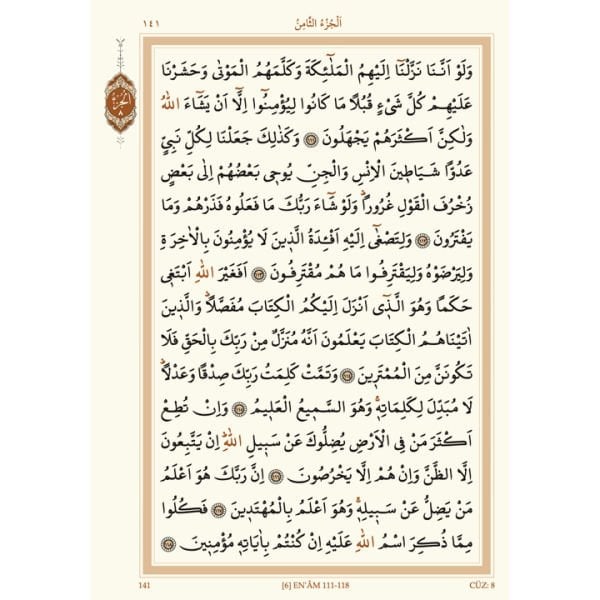 ١٤١ اَلْجُزْءُ الثَّامِنُ
اَلْجُزْءُ
٨
وَلَوْ اَنَّـنَا نَزَّلْـنَٓا اِلَيْهِمُ الْمَلٰٓئِكَةَ وَكَلَّمَهُمُ الْمَوْتٰى وَحَشَرْنَا
عَلَيْهِمْ كُلَّ شَيْءٍ قُبُلًا مَا كَانُوا لِيُؤْمِنُٓوا اِلَّٓا اَنْ يَشَٓاءَ اللّٰهُ
وَلٰكِنَّ اَكْثَرَهُمْ يَجْهَلُونَ ﴿١١١﴾ وَكَذٰلِكَ جَعَلْنَا لِكُلِّ نَبِيٍّ
عَدُوًّا شَيَاط۪ينَ الْاِنْسِ وَالْجِنِّ يُوح۪ي بَعْضُهُمْ اِلٰى بَعْضٍ
زُخْرُفَ الْقَوْلِ غُرُورًاۜ وَلَوْ شَٓاءَ رَبُّكَ مَا فَعَلُوهُ فَذَرْهُمْ وَمَا
يَفْتَرُونَ ﴿١١٢﴾ وَلِتَصْغٰٓى اِلَيْهِ اَفْـِٔدَةُ الَّذ۪ينَ لَا يُؤْمِنُونَ بِالْاٰخِرَةِ
وَلِيَرْضَوْهُ وَلِيَقْتَرِفُوا مَا هُمْ مُقْتَرِفُونَ ﴿١١٣﴾ اَفَغَيْرَ اللّٰهِ اَبْتَغ۪ي
حَكَمًا وَهُوَ الَّـذ۪ٓي اَنْزَلَ اِلَيْكُمُ الْكِتَابَ مُفَصَّلًاۜ وَالَّذ۪ينَ
اٰتَيْنَاهُمُ الْكِتَابَ يَعْلَمُونَ اَنَّهُ مُنَزَّلٌ مِنْ رَبِّكَ بِالْحَقِّ فَلَا
تَكُونَنَّ مِنَ الْمُمْتَر۪ينَ ﴿١١٤﴾ وَتَمَّتْ كَلِمَتُ رَبِّكَ صِدْقًا وَعَدْلًاۜ
لَا مُبَدِّلَ لِكَلِمَاتِه۪ۚ وَهُوَ السَّم۪يعُ الْعَل۪يمُ ﴿١١٥﴾ وَاِنْ تُطِعْ
اَكْثَرَ مَنْ فِي الْاَرْضِ يُضِلُّوكَ عَنْ سَب۪يلِ اللّٰهِۜ اِنْ يَتَّبِعُونَ
اِلَّا الظَّنَّ وَاِنْ هُمْ اِلَّا يَخْرُصُونَ ﴿١١٦﴾ اِنَّ رَبَّكَ هُوَ اَعْلَمُ
مَنْ يَضِلُّ عَنْ سَب۪يلِه۪ۚ وَهُوَ اَعْلَمُ بِالْمُهْتَد۪ينَ ﴿١١٧﴾ فَكُلُوا
مِمَّا ذُكِرَ اسْمُ اللّٰهِ عَلَيْهِ اِنْ كُنْتُمْ بِاٰيَاتِه۪ مُؤْمِن۪ينَ ﴿١١٨﴾
141 [6] EN'ÂM 111-118 CÜZ: 8